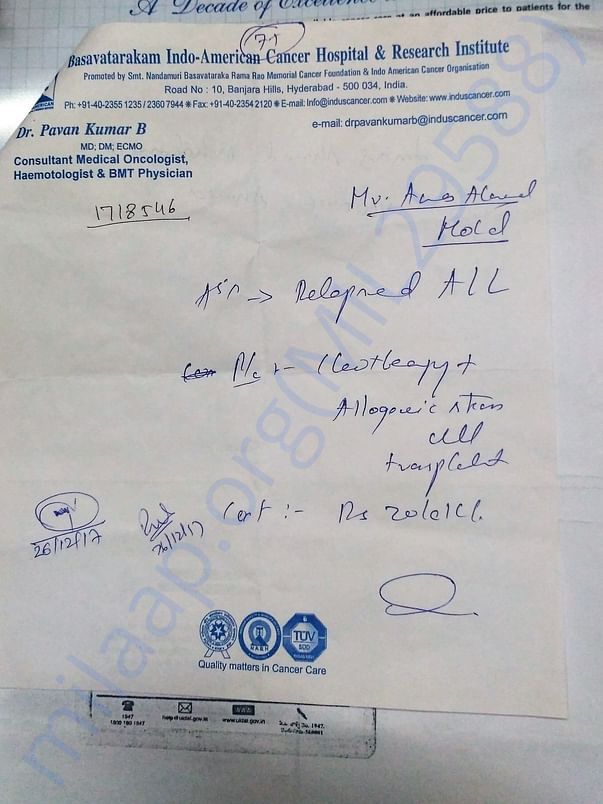 A Decade of Excellence
at an affordable price to patients for the
71
Basavatarakam Indo-American Cancer Hospital & Research Institute
Promoted by Smt. Nandamuri Basavataraka Rama Rao Memorial Cancer Foundation & Indo American Cancer Organisation
Road No : 10, Banjara Hills, Hyderabad - 500 034, India.
Ph: +91-40-2355 1235 / 2360 7944 ❋ Fax: +91-40-2354 2120 ❋ E-mail: Info@induscancer.com ❋ Website: www.induscancer.com
Dr. Pavan Kumar B
e-mail: drpavankumarb@induscancer.com
MD; DM; ECMO
Consultant Medical Oncologist,
Haemotologist & BMT Physician
1718546
Mr.
Mohd
→ Relapsed ALL
+
Allogeneic stem
cell
transplant
Cost :- Rs
26/12/17
26/12/17
NABH
TÜV
SÜD
Quality matters in Cancer Care
1947
1800 180 1947
help@uidai.gov.in
www
www.uidai.gov.in
1947,
milaap.org(MIL 295887)